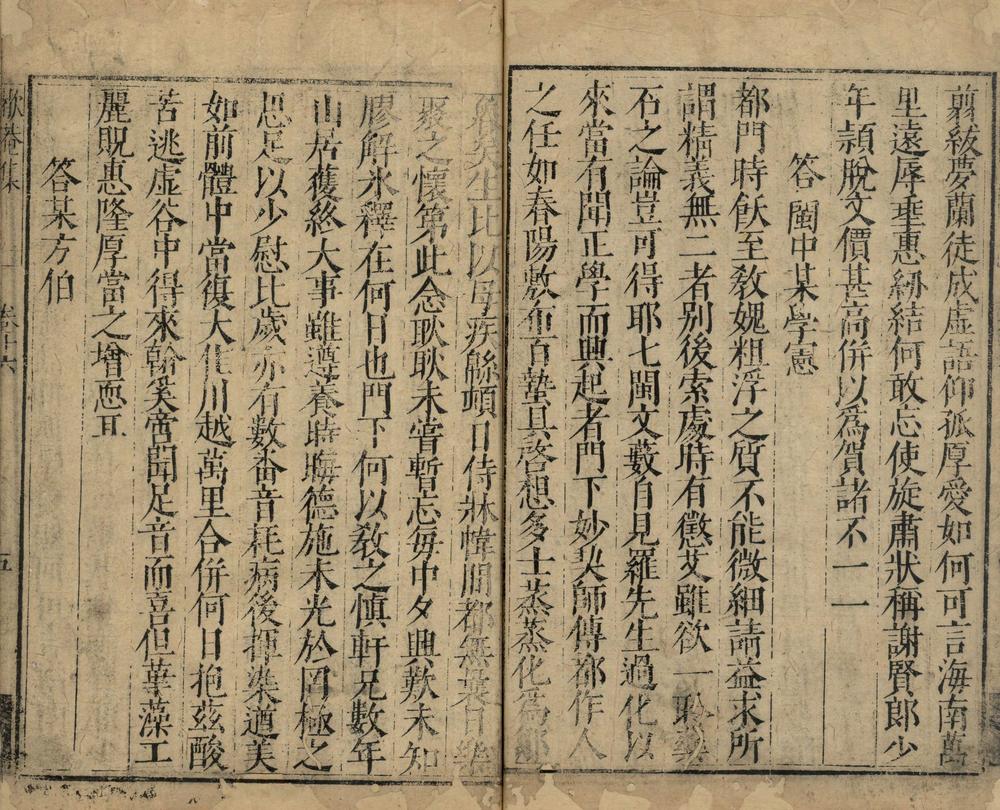 翦紱夢蘭徒成虛語仰孤厚愛如何可言海南萬
里遠辱垂惠紛結何敢忘使旋肅狀稱謝賢郎少
年頴脫文價甚高併以爲賀諸不一一
答閩中某學憲
都門時飫至敎媿粗浮之質不能微細請益求所
謂精義無二者別後索處時有懲艾雖欲一聆藥
石之論豈可得耶七閩文藪自見羅先生過化以
來當有聞正學而興起者門下妙契師傳都作人
之任如春陽敷布百蟄具啓想多士蒸蒸化爲鄒
矣生比以母疾緜頓日侍牀幃間都無曩日
聚之懷第此念耿耿未嘗暫忘每中夕興歎未知
膠解氷釋在何日也門下何以敎之愼軒兄數年
山居獲終大事雖遵養時晦德施未光於罔極之
思足以少慰比歲亦有數番音耗病後揮染遒美
如前體中當復大佳川越萬里合併何日抱茲酸
苦逃虛谷中得來翰奚啻聞足音而喜但華藻工
麗貺惠隆厚當之增恧耳
答某方伯
歇菴集
五